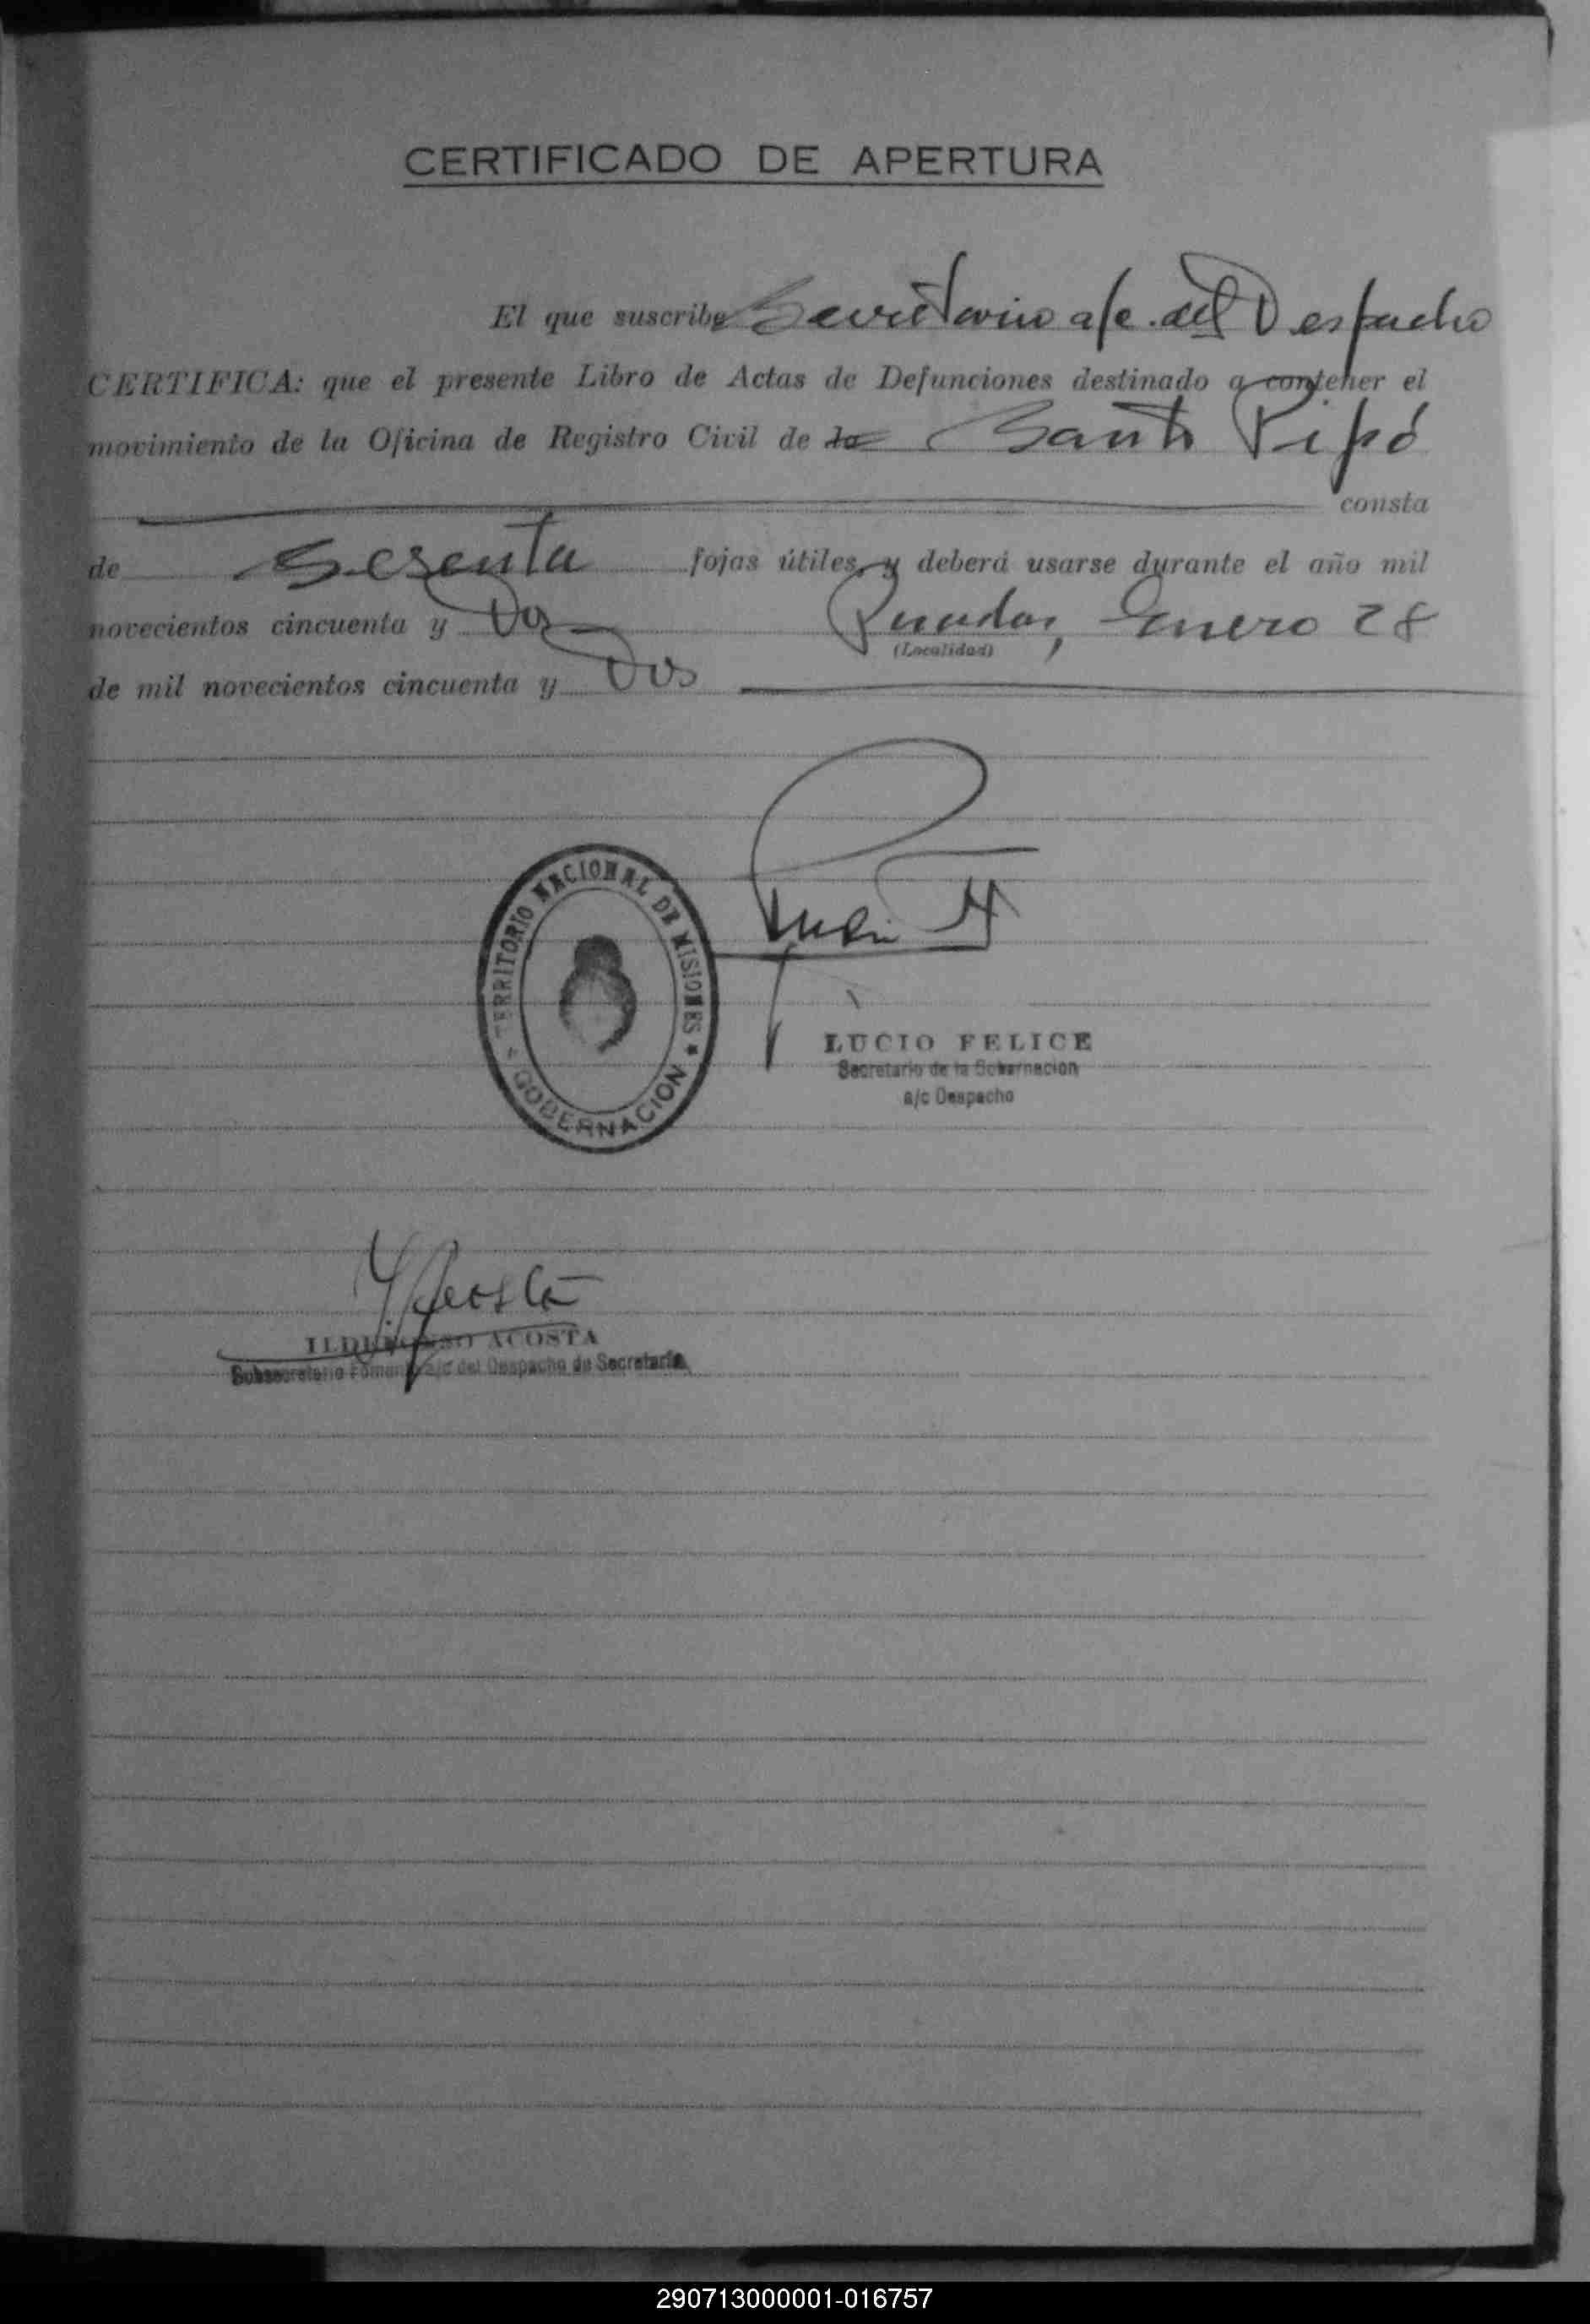 CERTIFICADO DE APERTURA
El que suscribe Secretario a/c. del Despacho
CERTIFICA: que el presente Libro de Actas de Defunciones destinado a contener el
movimiento de la Oficina de Registro Civil de la Santo Pipó
consta
de Sesenta fojas útiles, y deberá usarse durante el año mil
novecientos cincuenta y Dos Posadas, Enero 28
(Localidad)
de mil novecientos cincuenta y Dos
TERRITORIO NACIONAL DE MISIONES
GOBERNACION
LUCIO FELICE
Secretario de la Gobernacion
a/c Despacho
Y Acosta
ILDEFONSO ACOSTA
Subsecretario Fomento a/c del Despacho de Secretaría
290713000001-016757